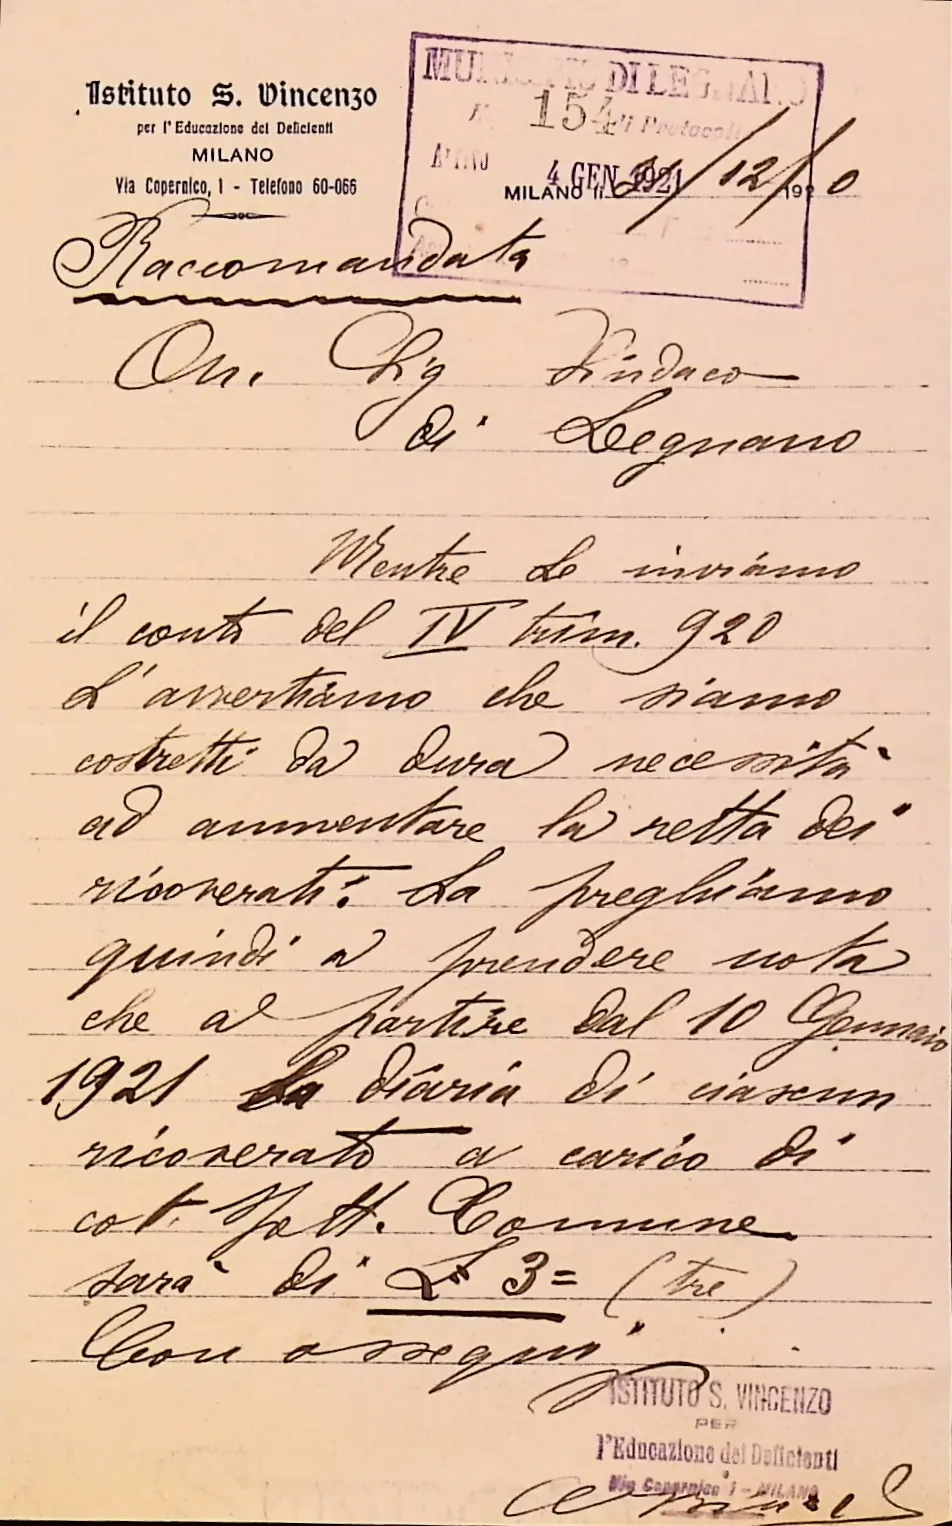 Istituto S. Vincenzo
per l'Educazione dei Deficienti
MILANO
Via Copernico, 1 - Telefono 60-066
MUNICIPIO DI LEGNANO
N. 154 di Protocollo
ANNO
4 GEN 1921
MILANO li 31/12/1920
Raccomandata
On. Sig Sindaco
di Legnano
Mentre Le inviamo
il conto del IV trim. 920
L'avvertiamo che siamo
costretti da dura necessità
ad aumentare la retta dei
ricoverati. La preghiamo
quindi a prendere nota
che a partire dal 10 Gennaio
1921 La diaria di ciascun
ricoverato a carico di
cot. Spett. Comune
sarà di L. 3= (tre)
Con ossequi
ISTITUTO S. VINCENZO
PER
l'Educazione dei Deficienti
Via Copernico 1 - MILANO